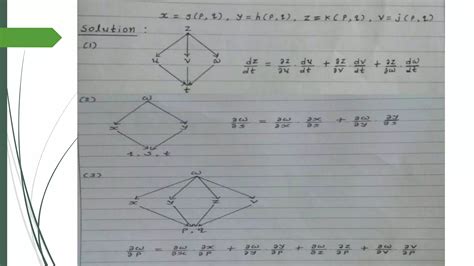 x = g(p,q), y = h(p,q), z = k(p,q), v = j(p,q)
Solution :
(1)
z
u v w
t
dz/dt = ∂z/∂u . du/dt + ∂z/∂v . dv/dt + ∂z/∂w . dw/dt
(2)
w
x y
r, s, t
∂w/∂s = ∂w/∂x . ∂x/∂s + ∂w/∂y . ∂y/∂s
(3)
w
x y z v
p, q
∂w/∂p = ∂w/∂x ∂x/∂p + ∂w/∂y ∂y/∂p + ∂w/∂z ∂z/∂p + ∂w/∂v ∂v/∂p